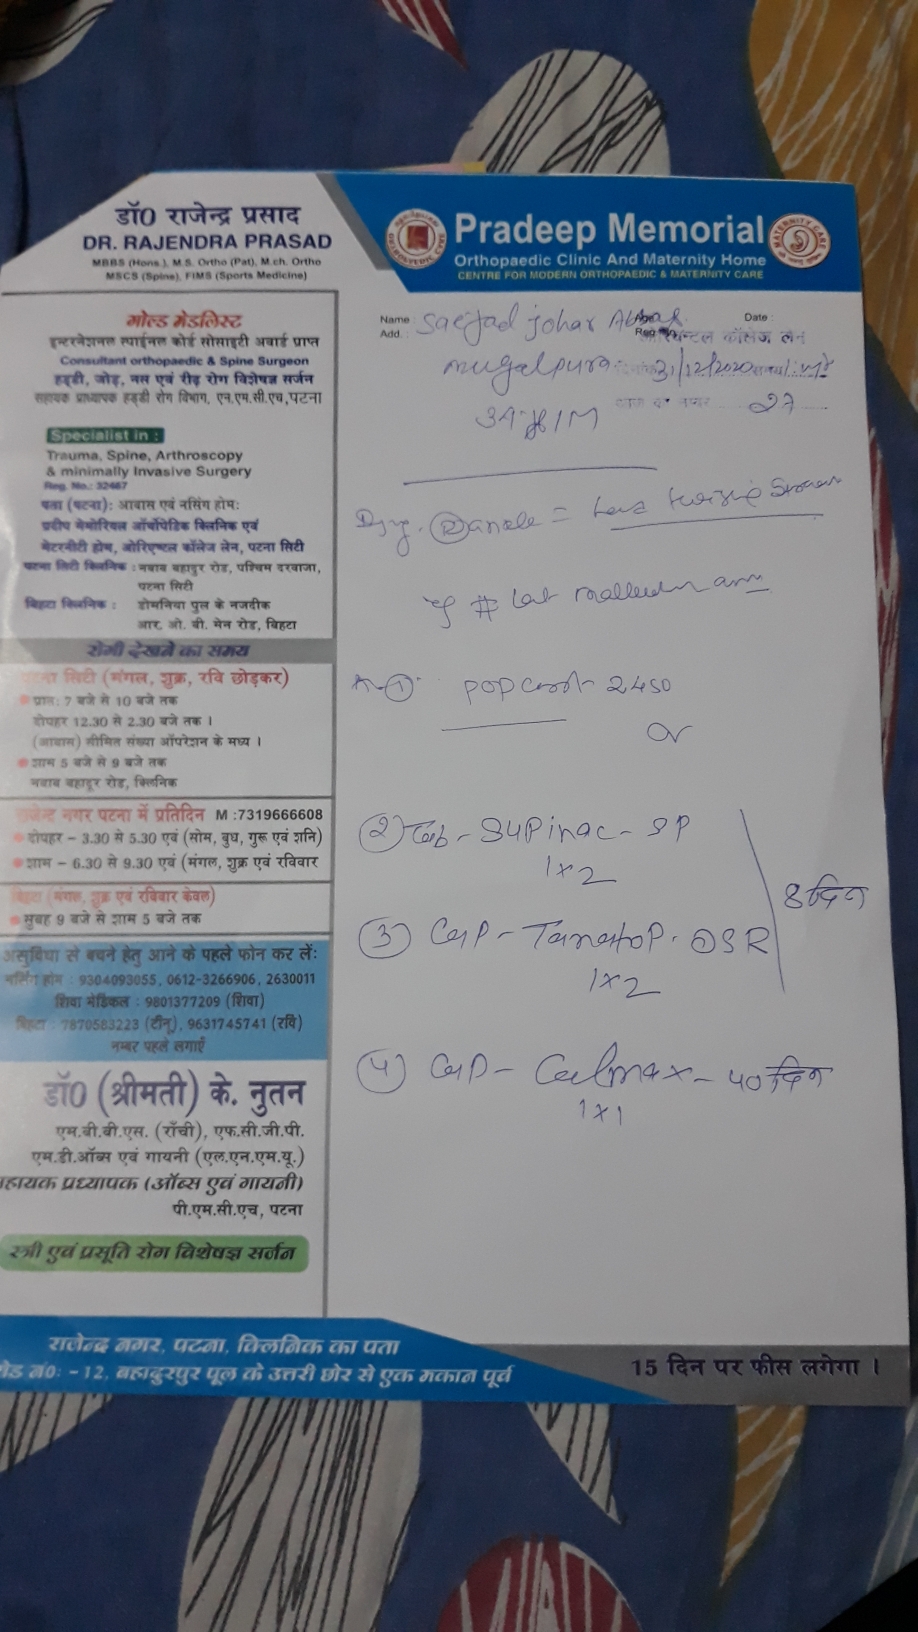 डॉ0 राजेन्द्र प्रसाद
DR. RAJENDRA PRASAD
MBBS (Hons.), M.S. Ortho (Pat), M.ch. Ortho
MSCS (Spine), FIMS (Sports Medicine)
Pradeep Memorial
Orthopaedic Clinic And Maternity Home
CENTRE FOR MODERN ORTHOPAEDIC & MATERNITY CARE
MATERNITY CARE
गोल्ड मेडलिस्ट
इन्टरनेशनल स्पाईनल कोर्ड सोसाइटी अवार्ड प्राप्त
Consultant orthopaedic & Spine Surgeon
हड्डी, जोड़, नस एवं रीढ़ रोग विशेषज्ञ सर्जन
सहायक प्राध्यापक हड्डी रोग विभाग, एन.एम.सी.एच, पटना
Specialist in :
Trauma, Spine, Arthroscopy
& minimally Invasive Surgery
Reg. No.: 32467
पता (पटना): आवास एवं नर्सिंग होम:
प्रदीप मेमोरियल ऑर्थोपेडिक क्लिनिक एवं
मेटरनीटी होम, ओरिएन्टल कॉलेज लेन, पटना सिटी
पटना सिटी क्लिनिक : नवाब बहादुर रोड, पश्चिम दरवाजा,
पटना सिटी
बिहटा क्लिनिक : डोमनिया पुल के नजदीक
आर. ओ. बी. मेन रोड, बिहटा
रोगी देखने का समय
पटना सिटी (मंगल, शुक्र, रवि छोड़कर)
प्रात: 7 बजे से 10 बजे तक
दोपहर 12.30 से 2.30 बजे तक ।
(आवास) सीमित संख्या ऑपरेशन के मध्य ।
शाम 5 बजे से 9 बजे तक
नवाब बहादुर रोड, क्लिनिक
राजेन्द्र नगर पटना में प्रतिदिन M :7319666608
दोपहर – 3.30 से 5.30 एवं (सोम, बुध, गुरू एवं शनि)
शाम – 6.30 से 9.30 एवं (मंगल, शुक्र एवं रविवार
बिहटा (मंगल, शुक्र एवं रविवार केवल)
सुबह 9 बजे से शाम 5 बजे तक
असुविधा से बचने हेतु आने के पहले फोन कर लें:
नर्सिंग होम : 9304093055, 0612-3266906, 2630011
शिवा मेडिकल : 9801377209 (शिवा)
बिहटा : 7870583223 (टीनू), 9631745741 (रवि)
नम्बर पहले लगाएँ
डॉ0 (श्रीमती) के. नुतन
एम.बी.बी.एस. (राँची), एफ.सी.जी.पी.
एम.डी.ऑब्स एवं गायनी (एल.एन.एम.यू.)
सहायक प्राध्यापक (ऑब्स एवं गायनी)
पी.एम.सी.एच, पटना
स्त्री एवं प्रसूति रोग विशेषज्ञ सर्जन
Name : Saejad Johar Date :
Add. : Reg कॉलेज लेन
mugalpura 31/12/2020
27
34 /M
# Lat
1 POP 2450
or
2 Tab - SUPinac - SP
1x2
3 CaP - TanatoP. DSR
1x2
8 दिन
4 CaP - Calmax - 40 दिन
1x1
राजेन्द्र नगर, पटना, क्लिनिक का पता
रोड नं0: -12, बहादुरपुर पूल के उत्तरी छोर से एक मकान पूर्व
15 दिन पर फीस लगेगा ।